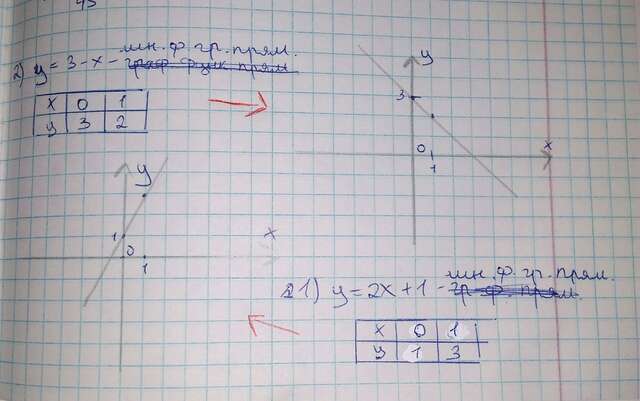 45
2) y = 3 - x - лин. ф. гр. прям.
x 0 1
y 3 2
y
3
0
1
x
y
1
0
1
x
1) y = 2x + 1 - лин. ф. гр. прям.
x 0 1
y 1 3